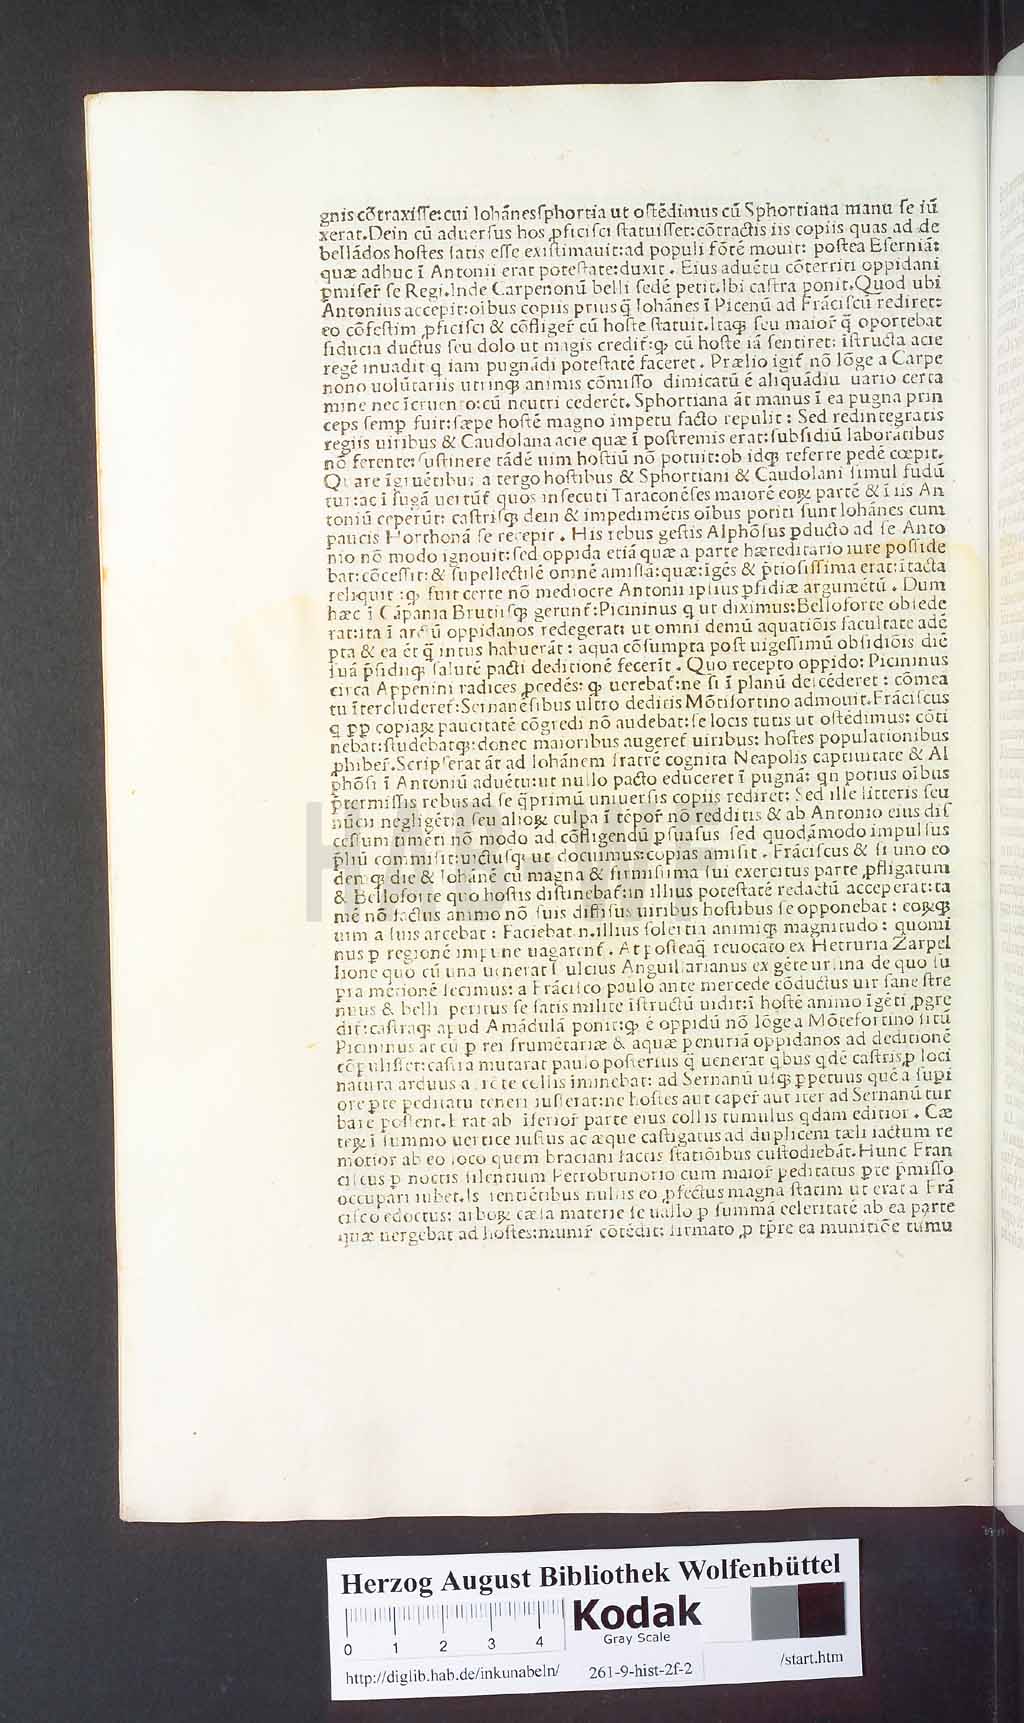 gnis cõtraxiſſe: cui Iohãnes ſphortia ut oſtẽdimus cũ Sphortiana manu ſe iũ
xerat. Dein cũ aduerſus hos ꝓficiſci ſtatuiſſet: cõtractis iis copiis quas ad de
bellãdos hoſtes ſatis eſſe exiſtimauit: ad populi fõtẽ mouit: poſtea Eſerniã:
quæ adhuc ĩ Antonii erat poteſtate: duxit. Eius aduẽtu cõterriti oppidani
ꝑmiſer̃ ſe Regi. Inde Carpenonũ belli ſedẽ petit. Ibi caſtra ponit. Quod ubi
Antonius accepit: oĩbus copiis prius q̃ Iohãnes ĩ Picenũ ad Frãciſcũ rediret:
eo cõfeſtim ꝓficiſci & cõfliger̃ cũ hoſte ſtatuit. Itaqꝫ ſeu maior̃ q̃ oportebat
fiducia ductus ſeu dolo ut magis credit̃: qꝫ cũ hoſte iã ſentiret: ĩſtructa acie
regẽ inuadit q iam pugnãdi poteſtatẽ faceret. Prælio igit̃ nõ lõge a Carpe
nono uolũtariis utrinqꝫ animis cõmiſſo dimicatũ ẽ aliquãdiu uario certa
mine nec ĩcruento: cũ neutri cederẽt. Sphortiana ãt manus ĩ ea pugna prin
ceps ſemꝑ fuit: ſæpe hoſtẽ magno impetu facto repulit: Sed redintegratis
regiis uiribus & Caudolana acie quæ ĩ poſtremis erat: ſubſidiũ laborãtibus
nõ ferente: ſuſtinere tãdẽ uim hoſtiũ nõ potuit: ob idqꝫ referre pedẽ cœpit.
Quare ĩgruẽtibus a tergo hoſtibus & Sphortiani & Caudolani ſimul fudũ
tur: ac ĩ fugã uertũt̃ quos inſecuti Taraconẽſes maiorẽ eoꝝ partẽ & ĩ iis An
toniũ ceperũt: caſtriſqꝫ dein & impedimẽtis oĩbus potiti ſunt Iohãnes cum
paucis Horthonã ſe recepit. His rebus geſtis Alphõſus ꝑducto ad ſe Anto
nio nõ modo ignouit: ſed oppida etiã quæ a parte hæreditario iure poſſide
bat: cõceſſit: & ſupellectilẽ omnẽ amiſſã: quæ: ĩgẽs & p̃tioſiſſima erat: ĩtacta
reliquit: qꝫ fuit certe nõ mediocre Antonii ipſius ꝑfidiæ argumẽtũ. Dum
hæc ĩ Cãpania Brutiiſqꝫ gerunt̃: Picininus q ut diximus: Belloforte obſede
rat: ita ĩ arctũ oppidanos redegerat: ut omni demũ aquatiõis facultate adẽ
pta & ea ẽt q̃ intus habuerãt: aqua cõſumpta poſt uigeſſimũ obſidiõis diẽ
ſuã p̃ſidiiqꝫ ſalutẽ pacti deditionẽ fecerĩt. Quo recepto oppido: Picininus
circa Appenini radices ꝓcedẽs: qꝫ uerebat̃: ne ſi ĩ planũ deſcẽderet: cõmea
tu ĩtercluderet̃: Sernanẽſibus ultro deditis Mõtiſortino admouit. Frãciſcus
q ꝓꝑ copiaꝝ paucitatẽ cõgredi nõ audebat: ſe locis tutis ut oſtẽdimus: cõti
nebat: ſtudebatqꝫ: donec maioribus augeret̃ uiribus: hoſtes populationibus
ꝓhiber̃. Scripſerat ãt ad Iohãnem fratrẽ cognita Neapolis captiuitate & Al
phõſi ĩ Antoniũ aduẽtu: ut nullo pacto educeret ĩ pugnã: qn potius oĩbus
p̃termiſſis rebus ad ſe q̃primũ uniuerſis copiis rediret: Sed ille litteris ſeu
nũcii negligẽtia ſeu alioꝝ culpa ĩ tẽpor̃ nõ redditis & ab Antonio eius diſ
ceſſum timẽti nõ modo ad cõfligendũ ꝑſuaſus ſed quodãmodo impulſus
p̃liũ commiſit: uictuſqꝫ ut docuimus: copias amiſit. Frãciſcus & ſi uno eo
demqꝫ die & Iohãnẽ cũ magna & firmiſſima ſui exercitus parte ꝓfligatum
& Belloforte quo hoſtis diſtinebat̃: in illius poteſtatẽ redactũ acceperat: ta
mẽ nõ factus animo nõ ſuis diffiſus uiribus hoſtibus ſe opponebat: eoꝝqꝫ
uim a ſuis arcebat: Faciebat n. illius ſolertia animiqꝫ magnitudo: quomi
nus ꝑ regionẽ impune uagarent̃. At poſteaq̃ reuocato ex Hetruria Zarpel
lione quo cũ una uenerat Fulcius Anguillarianus ex gẽte urſina de quo ſu
pra mẽtionẽ fecimus: a Frãciſco paulo ante mercede cõductus uir ſane ſtre
nuus & belli peritus ſe ſatis milite ĩſtructũ uidit: ĩ hoſtẽ animo ĩgẽti ꝓgre
dit̃: caſtraqꝫ apud Amãdulã ponit: qꝫ ẽ oppidũ nõ lõge a Mõtefortino ſitũ
Picininus at cũ ꝑ rei frumẽtariæ & aquæ penuriã oppidanos ad deditionẽ
cõpuliſſet: caſtra mutarat paulo poſterius q̃ uenerat qbus qdẽ caſtris ꝓ loci
natura arduus a frõte collis iminebat: ad Sernanũ uſqꝫ ꝑpetuus quẽ a ſupi
ore ꝑte peditatu teneri iuſſerat: ne hoſtes aut caper̃ aut iter ad Sernanũ tur
bare poſſent. Erat ab ĩferior̃ parte eius collis tumulus qdam editior. Cæ
teꝝ ĩ ſummo uertice iuſtius ac æque caſtigatus ad duplicem tæli iactum re
motior ab eo loco quem braciani factis ſtatiõibus cuſtodiebãt. Hunc Fran
ciſcus ꝑ noctis ſilentium Petrobrunorio cum maior̃ peditatus ꝑte p̃miſſo
occupari iubet. Is ſentiẽtibus nullis eo ꝓfectus magna ſtatim ut erat a Frã
ciſco edoctus: arboꝝ cæſa materie ſe uallo ꝑ ſummã celeritatẽ ab ea parte
quæ uergebat ad hoſtes: munir̃ cõtẽdit: firmato ꝓ tp̃re ea munitiõe tumu
Herzog August Bibliothek Wolfenbüttel
Kodak
Gray Scale
0 1 2 3 4
http://diglib.hab.de/inkunabeln/ 261-9-hist-2f-2 /start.htm